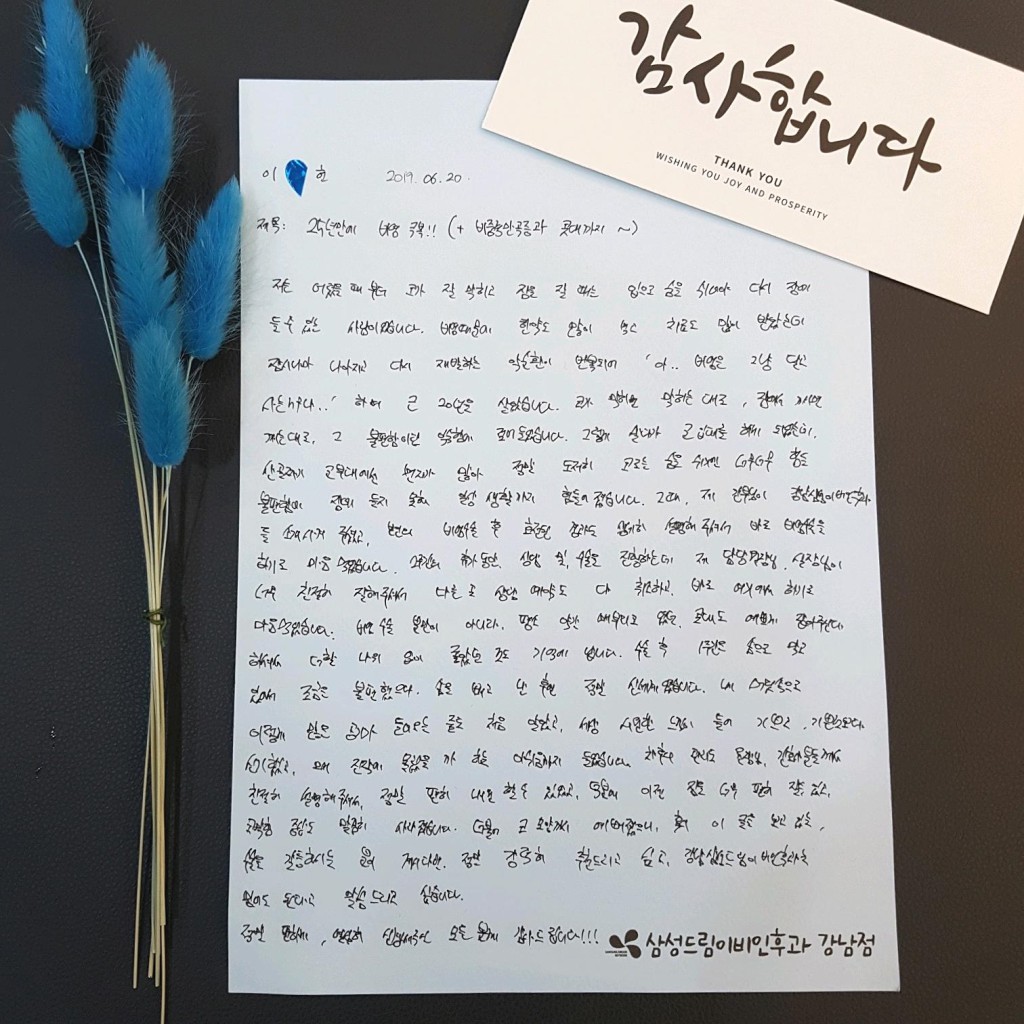 감사합니다
THANK YOU
WISHING YOU JOY AND PROSPERITY
이 현 2019. 06. 20.
제목: 25년만에 비염 극복!! (+ 비중격만곡증과 콧대까지 ~)
저는 어렸을 때부터 코가 잘 막히고 잠을 잘 때는 입으로 숨을 쉬어야 다시 잠에
들 수 있는 사람이었습니다. 비염때문에 한약도 많이 먹고 치료도 많이 받았는데
잠시나마 나아지고 다시 재발하는 악순환이 반복되어 '아.. 비염은 그냥 달고
사는거구나..' 하며 근 20년을 살았습니다. 코가 막히면 막히는 대로, 잠에서 깨면
깨는대로, 그 불편함이란 익숙함에 되어 있었습니다. 그렇게 살다가 군입대를 하게 되었는데,
산골짜기 군부대에선 먼지가 많아 정말 도저히 코로는 숨을 쉬기엔 너무너무 힘들
불편함에 잠의 들지 못해 일상 생활까지 힘들어졌습니다. 그때, 제 간부님이 강남삼성드림이비인후과
를 소개시켜 주셨고, 본인의 비염수술 후 호전된 결과도 상세히 설명해 주셔서 바로 비염수술을
하기로 마음 먹었습니다. 휴가 동안, 상담 및 수술도 진행하는데 제 담당 원장님, 실장님이
너무 친절히 잘해주셔서 다른 곳 상담 예약도 다 취소하고, 바로 여기에서 하기로
마음먹었습니다. 비염 수술 뿐만이 아니라, 평상 약간 매부리코 였던 콧대도 예쁘게 잡아주신다
하셔서 더할 나위 없이 좋았던 것도 기억에 납니다. 수술 후 1주일은 솜으로 막고
있어서 조금은 불편했으나, 솜을 빼고 난 후엔 정말 신세계였습니다. 내 콧속으로
이렇게 많은 공기가 들어오는 줄도 처음 알았고, 세상 시원한 느낌이 들어
신기했고, 왜 진작에 몰랐을까 하는 아쉬움까지 들었습니다. 원장님, 간호사분들께서
친절히 설명해주셔서, 정말 편히 내원 할 수 있었고, 덕분에 이젠 잠도 너무 편히 잘 자고,
코막힘 증상도 말끔히 사라졌습니다. 더불어 코 모양까지 예뻐졌으니, 혹시 이 글을 보고 있는,
수술을 갈등하시는 분이 계시다면, 정말 강력히 추천드리고 싶고, 강남삼성드림이비인후과는
믿어도 된다고 말씀드리고 싶습니다.
정말 편하게, 열심히 신경써주신 모든 분께 감사드립니다!!!
삼성드림이비인후과 강남점